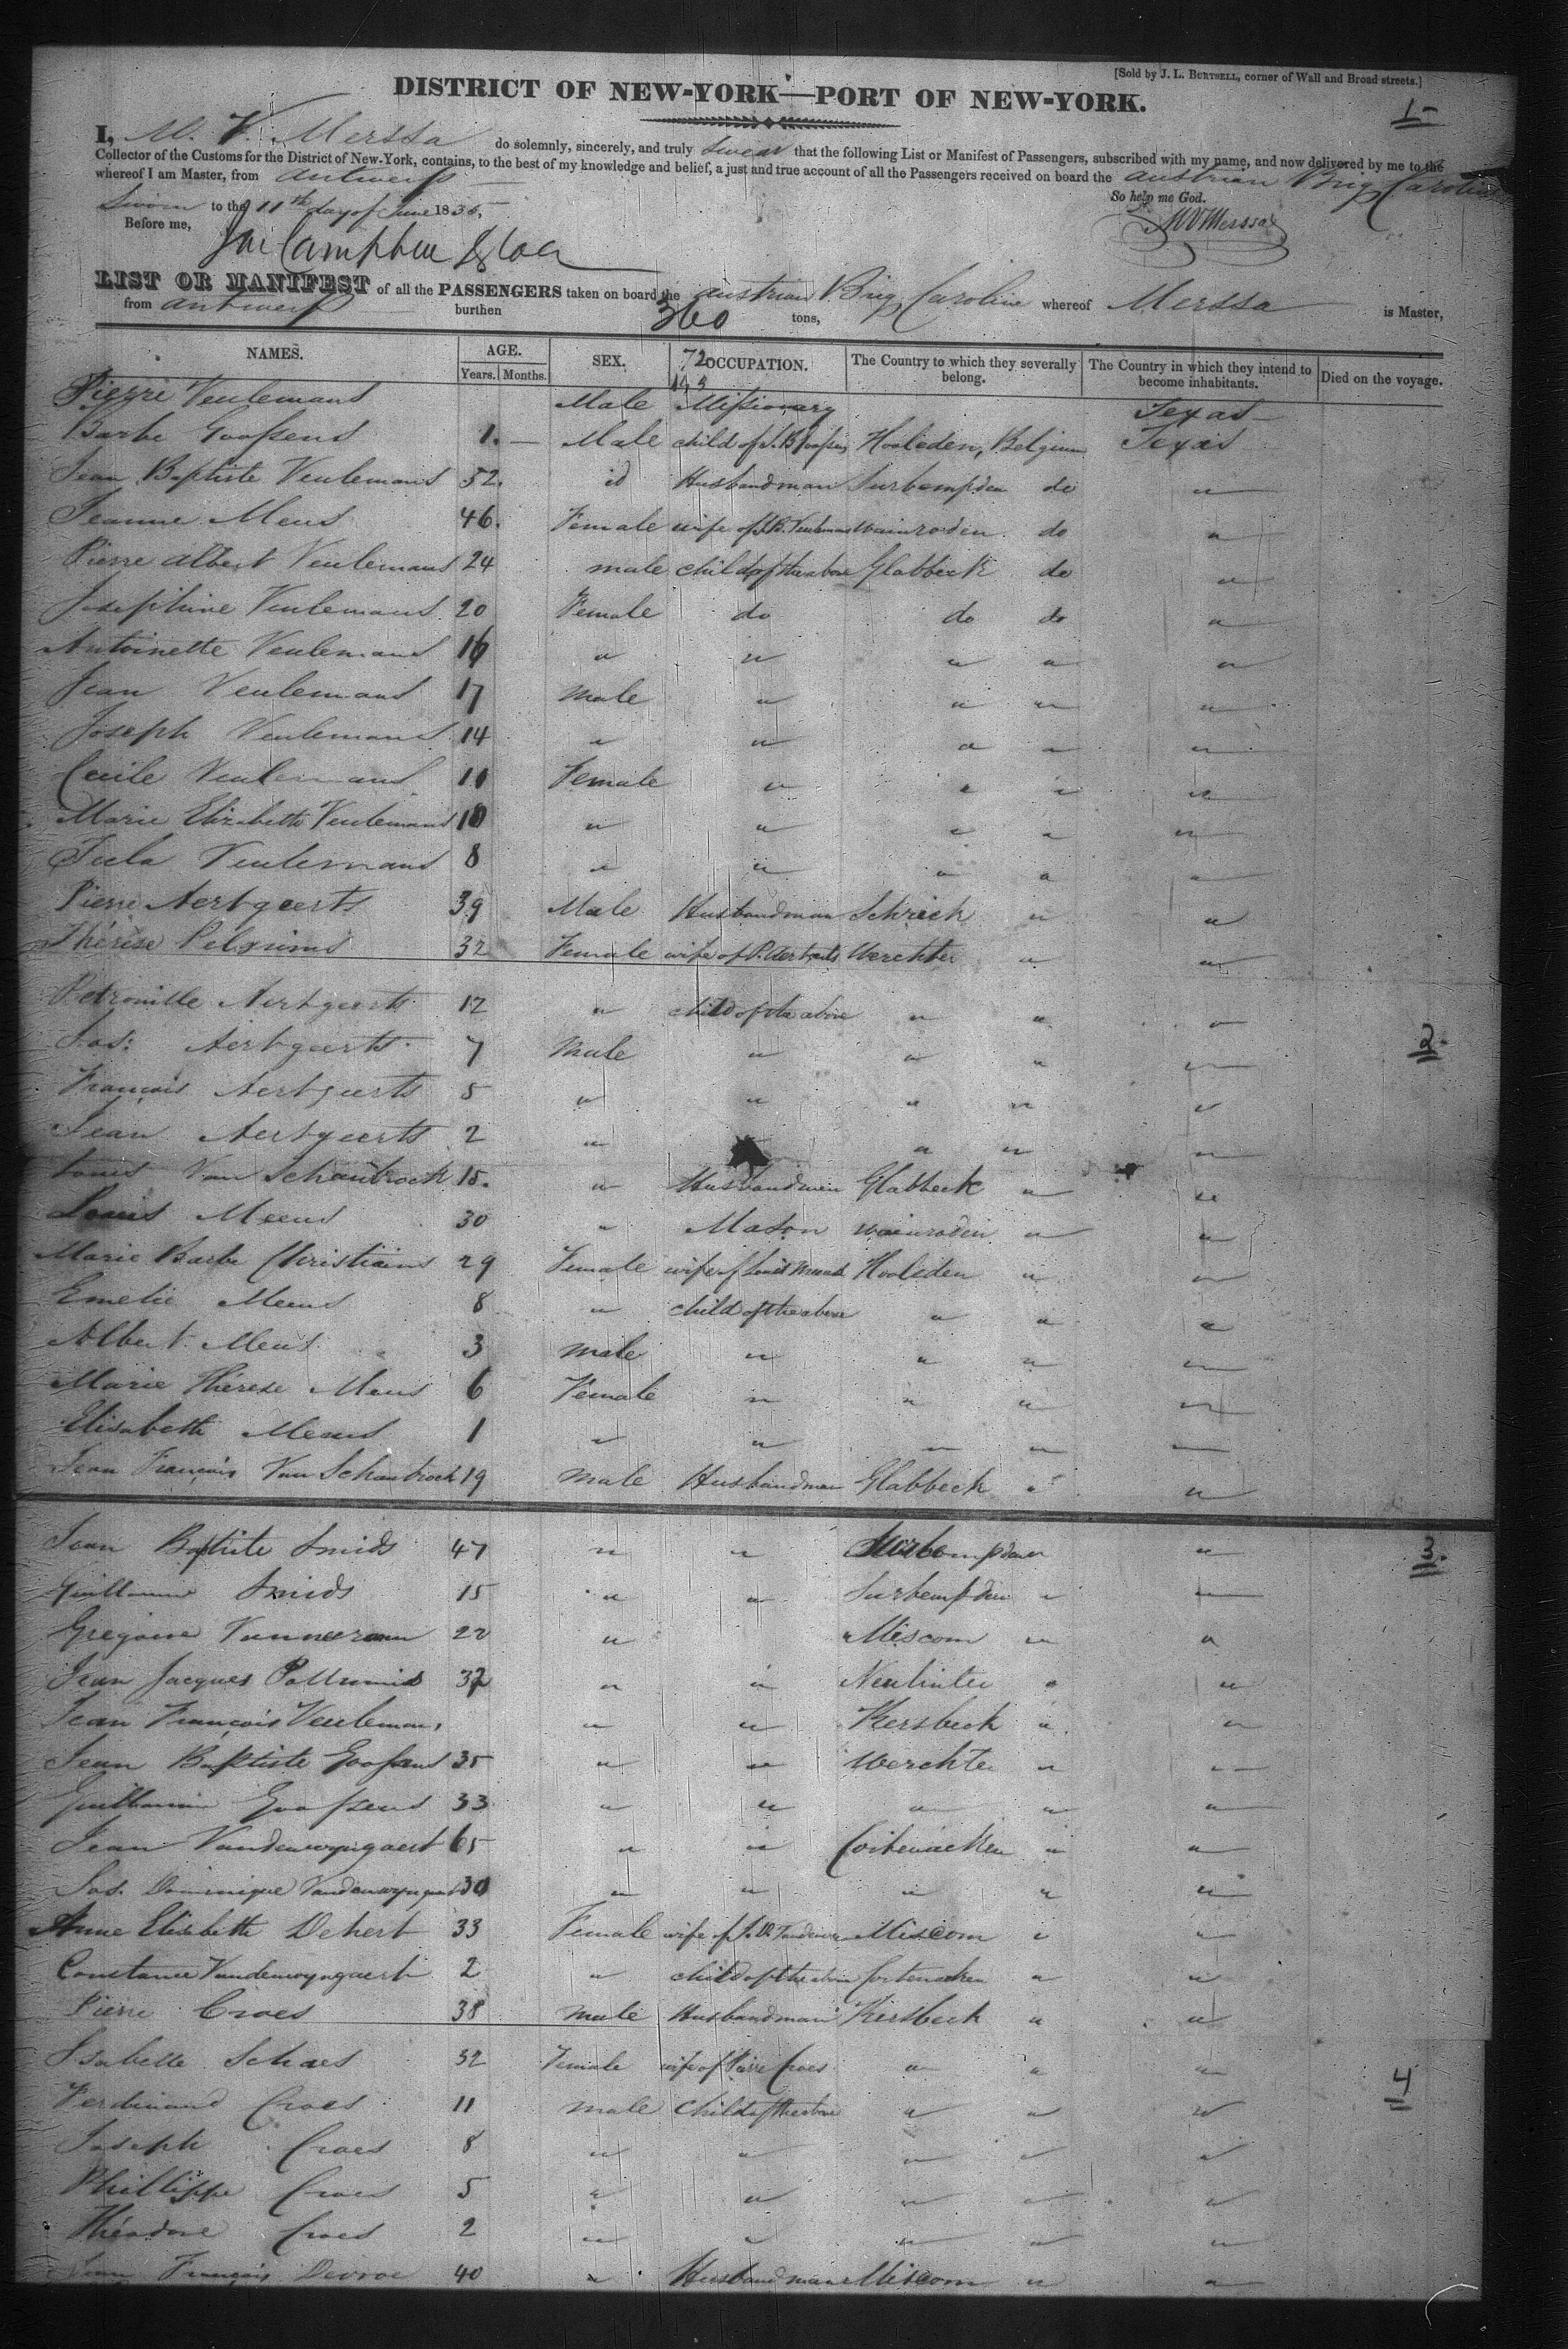 [Sold by J. L. BURTSELL, corner of Wall and Broad streets.]
DISTRICT OF NEW-YORK—PORT OF NEW-YORK.
1
I, M. V. Merssa do solemnly, sincerely, and truly swear that the following List or Manifest of Passengers, subscribed with my name, and now delivered by me to the
Collector of the Customs for the District of New-York, contains, to the best of my knowledge and belief, a just and true account of all the Passengers received on board the austrian Brig Caroline
whereof I am Master, from antwerp
So help me God.
Sworn to the 11th day of June 1835,
MVMerssa
Before me,
LIST OR MANIFEST of all the PASSENGERS taken on board the austrian Brig Caroline whereof Merssa is Master,
from antwerp burthen 360 tons,
NAMES. AGE. SEX. 72 OCCUPATION. The Country to which they severally belong. The Country in which they intend to become inhabitants. Died on the voyage.
Years. Months.
Pierre Veulemans Male Missionary Texas
Barbe Goossens 1. — Male child of J. B Goossens Hooleden, Belgium Texas
Jean Baptiste Veulemans 52. id Husbandman Surbempden do "
Jeanne Meus 46. Female wife of J.B. Veulemans wainroden do "
Pierre Albert Veulemans 24 male child of the above Glabbeek do "
Josephine Veulemans 20 Female do do do "
Antoinette Veulemans 16 " " " " "
Jean Veulemans 17 male " " " "
Joseph Veulemans 14 " " " " "
Cecile Veulemans 11 Female " " " "
Marie Elizabeth Veulemans 10 " " " " "
Tecla Veulemans 8 " " " " "
Pierre Aertgeerts 39 Male Husbandman Schrieck " "
Thérèse Pelgrims 32 Female wife of P. Aertgeerts Werchter " "
Petronille Aertgeerts 12 " child of the above " " "
Jos: Aertgeerts 7 Male " " " "
2.
François Aertgeerts 5 " " " " "
Jean Aertgeerts 2 " " " "
Louis Van Schoubroeck 15. " Husbandmen Glabbeek " "
Louis Meeus 30 " Mason wainroden " "
Marie Barbe Christiaens 29 Female wife of Louis Meeus Hooleden " "
Emelie Meeus 8 " child of the above " " "
Albert Meus 3 male " " " "
Marie Thérèse Meus 6 Female " " " "
Elisabeth Meeus 1 " " " " "
Jean François Van Schoubroeck 19 male Husbandman Glabbeek " "
Jean Baptiste Smids 47 " " Surbempden "
3.
Guillaume Smids 15 " " Surbempden " "
Gregoire 22 " Miscom " "
Jean Jacques 32 " " Neulinter " "
Jean François Veulemans " " Kersbeck " "
Jean Baptiste Goossens 35 " " Werchter " "
Guillaume Goossens 33 " " " " "
Jean Vandenwyngaert 65 " " Cortenacken " "
Jos. Dominique Vandenwyngaert 30 " " " " "
Anne Elisabeth Dehert 33 Female wife of J. D. Miscom " "
Constance Vandenwyngaert 2 " child of the above Cortenacken " "
Pierre Croes 38 male Husbandman Kersbeek " "
Isabelle Schaes 32 Female wife of Pierre Croes " " "
4
Ferdinand Croes 11 male Child of the above " " "
Joseph Croes 8 " " " " "
Phillippe Croes 5 " " " " "
Théodore Croes 2 " " " " "
Jean François Devroe 40 " Husbandman Miscom " "